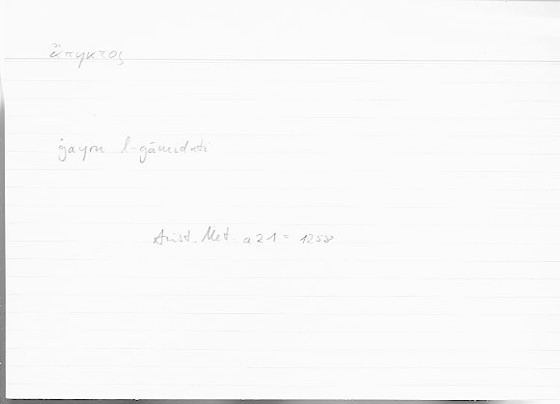 ἄπηκτος
ġayru l-ǧāmidati
Arist. Met. a 21 = 1258